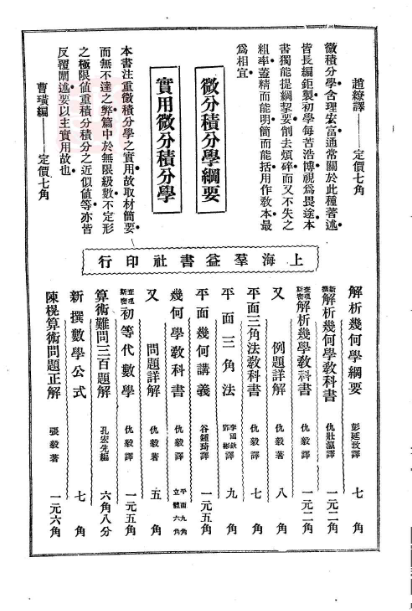 趙繚譯——定價七角
微積分學合理宏富通常關於此種著述
皆長編鉅製初學每苦浩博視為畏途本
書獨能提綱挈要削去煩碎而又不失之
粗率蓋精而能明簡而能括用作敎本最
為相宜
微分積分學綱要
實用微分積分學
本書注重微積分學之實用故取材簡要
而無不達之弊篇中於無限級數不定形
之極限值重積分積分之近似值等亦皆
反覆闡述要以主實用故也
曹璜編——定價七角
上海羣益書社印行
解析幾何學綱要 彭延敎譯 七角
解析幾何學敎科書 仇壯瀛譯 一元二角
解析幾學敎科書 仇毅譯 一元二角
又 例題詳解 仇毅著 八角
平面三角法敎科書 仇毅譯 七角
平面三角法 李國欽 鄧彬譯 九角
平面幾何講義 谷鍾琦譯 一元五角
幾何學敎科書 仇毅譯 平面九角 立體六角
又 問題詳解 仇毅著 五角
初等代數學 仇毅譯 一元五角
算術難問三百題解 孔宏先編 六角八分
新撰數學公式 仇毅譯 七角
陳槼算術問題正解 張毅著 一元六角